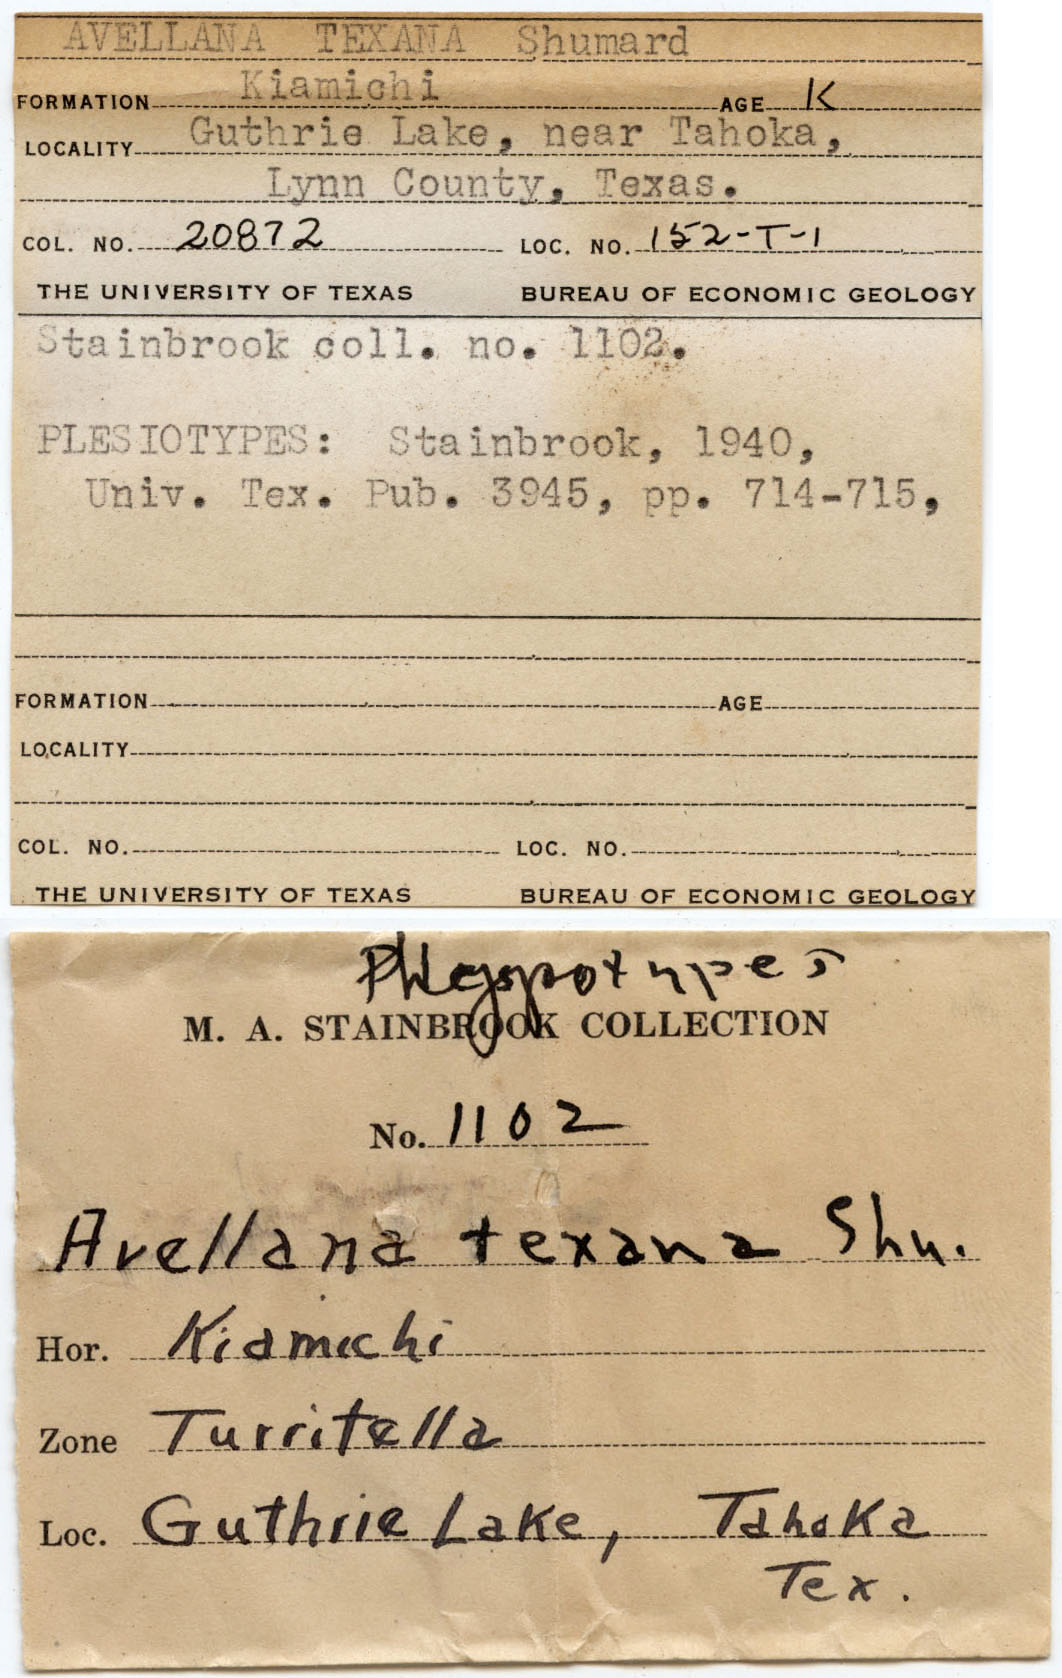 AVELLANA TEXANA Shumard
FORMATION Kiamichi AGE K
LOCALITY Guthrie Lake, near Tahoka,
Lynn County, Texas.
COL. NO. 20872 LOC. NO. 152-T-1
THE UNIVERSITY OF TEXAS BUREAU OF ECONOMIC GEOLOGY
Stainbrook coll. no. 1102.
PLESIOTYPES: Stainbrook, 1940,
Univ. Tex. Pub. 3945, pp. 714-715,
FORMATION AGE
LOCALITY
COL. NO. LOC. NO.
THE UNIVERSITY OF TEXAS BUREAU OF ECONOMIC GEOLOGY
M. A. STAINBROOK COLLECTION
No. 1102
Avellana texana Shu.
Hor. Kiamichi
Zone Turritella
Loc. Guthrie Lake, Tahoka
Tex.